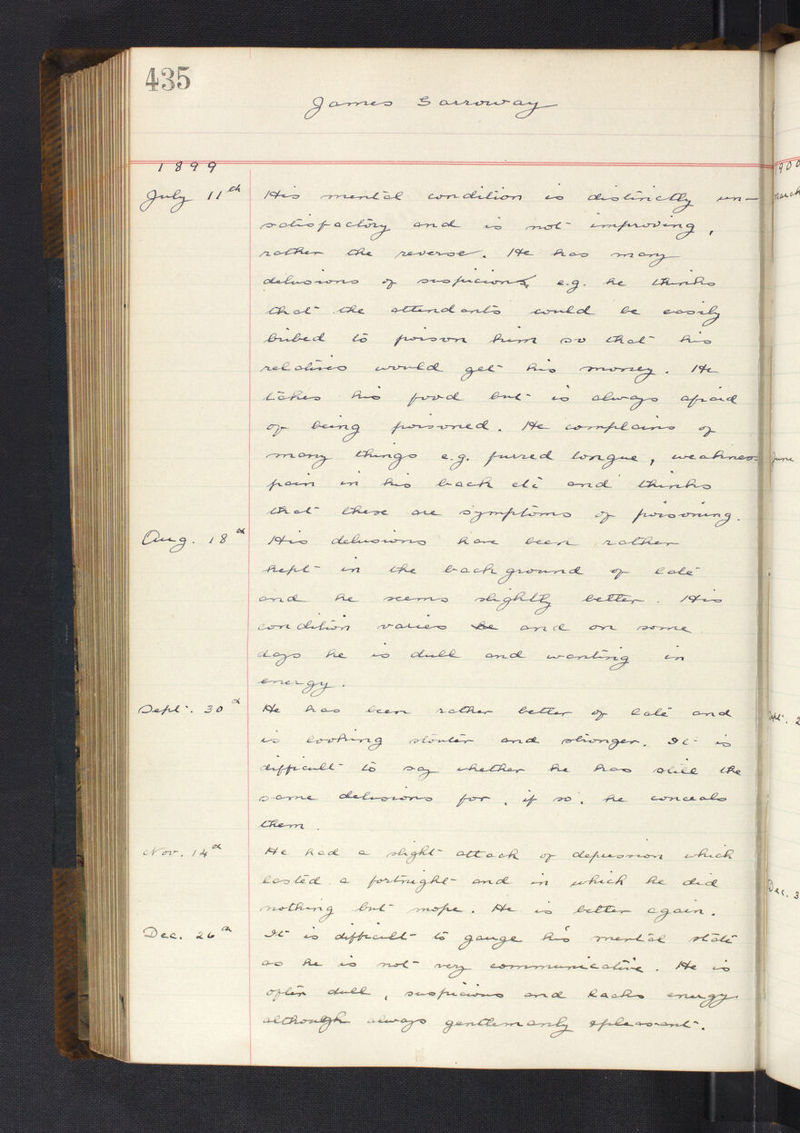 435
James Sarroway
1899
July 11th His mental condition is distinctly un-
satisfactory and is not improving,
rather the reverse. He has many
delusions of suspicions, e.g. he thinks
that the attendants could be easily
bribed to poison him so that his
relatives would get his money. He
takes his food but is always afraid
of being poisoned. He complains of
many things e.g. furred tongue, weakness
pain in his back etc and thinks
that these are symptoms of poisoning.
Aug. 18th His delusions have been rather
kept in the background of late
and he seems slightly better. His
condition varies and on some
days he is dull and wanting in
energy.
Sept. 30th He has been rather better of late and
is looking stouter and stronger. It is
difficult to say whether he has still the
same delusions for, if so, he conceals
them.
Nov. 14th He had a slight attack of depression which
lasted a fortnight and in which he did
nothing but mope. He is better again.
Dec. 26th It is difficult to gauge his mental state
as he is not very communicative. He is
often dull, suspicious and lacks energy
although always gentlemanly & pleasant.